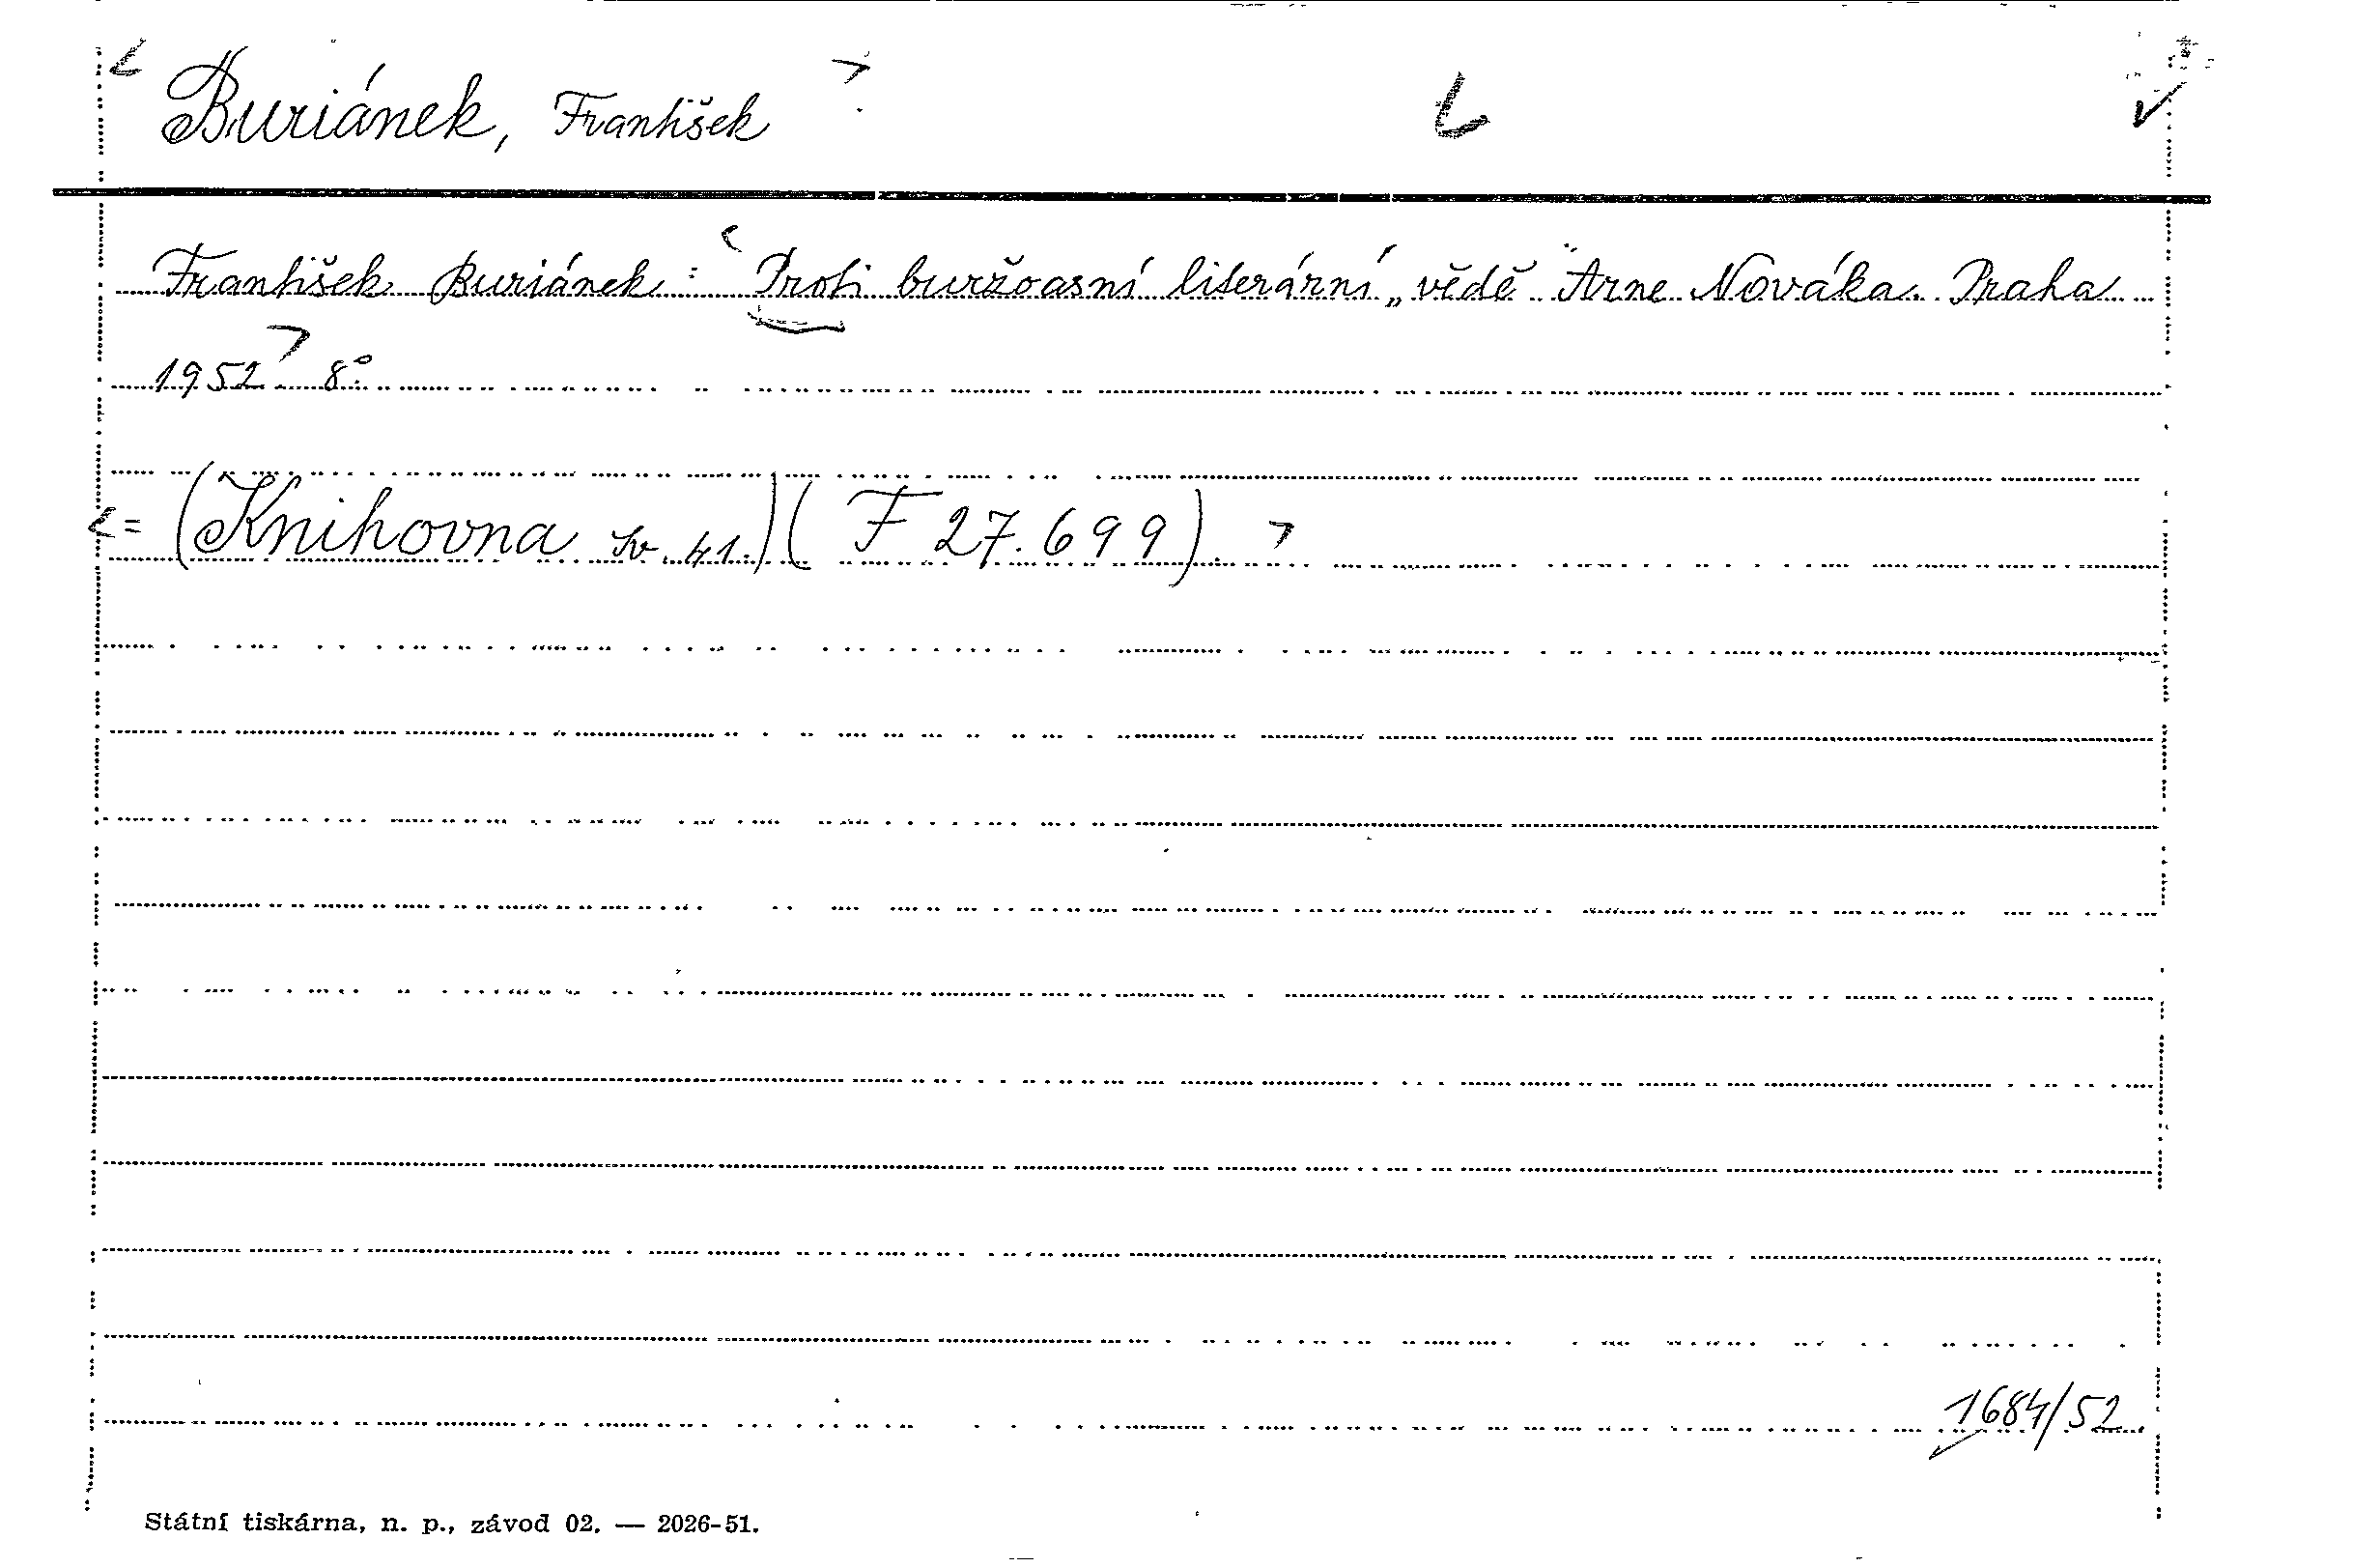 Buriánek, František
František Buriánek: Proti buržoasní literární „vědě" Arne Nováka. Praha
1952 8°
= (Knihovna sv. 41.) ( F 27.699).
1684/52.
Státní tiskárna, n. p., závod 02. — 2026-51.